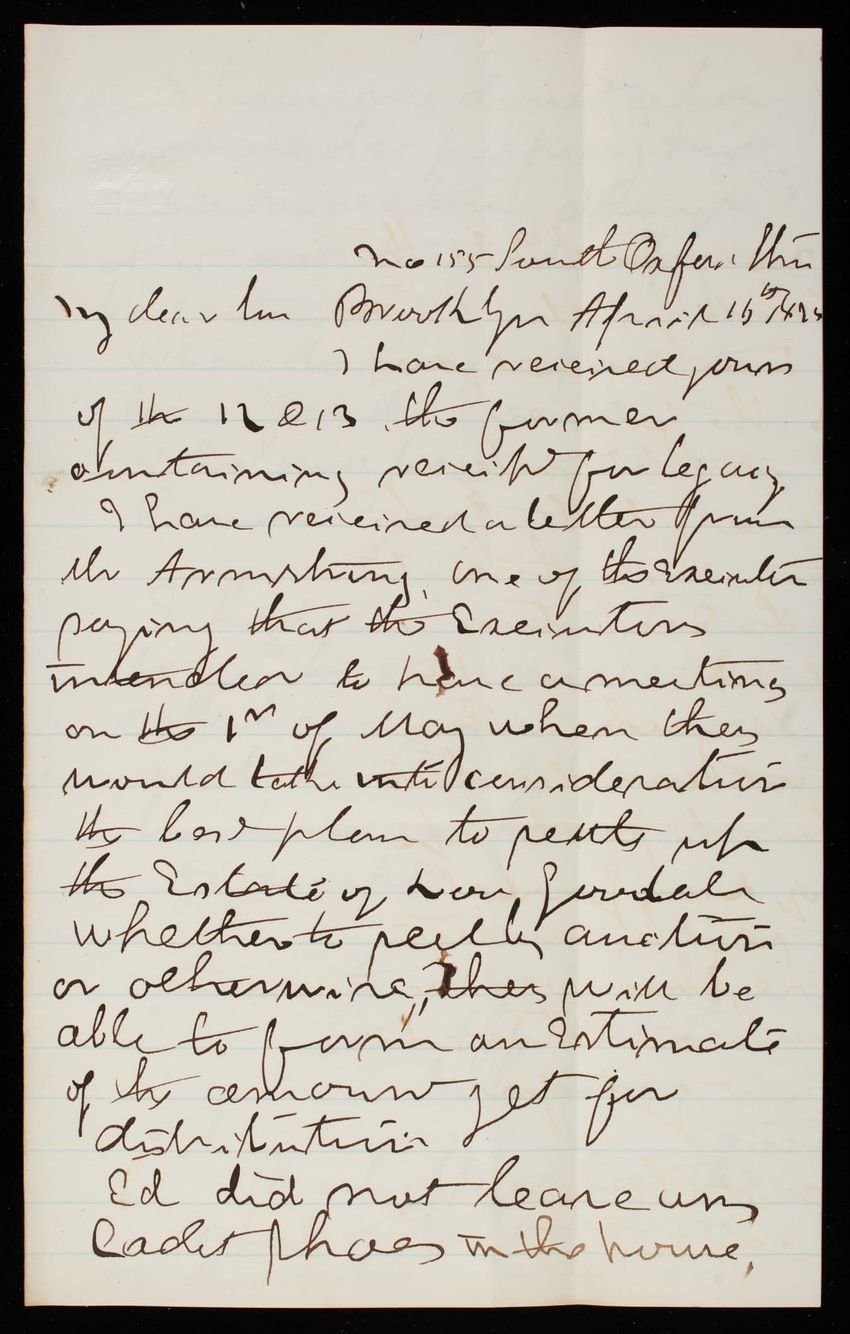 No 155 South Oxford Stree
My dear Son Brooklyn April 16th
I have received yours
of the 12 & 13. the former
containing receipt for legacy
I have received a letter from
Mr Armstrong, one of the Executor
saying that the Executors
intended to have a meeting
on the 1st of May when they
would take into consideration
the best plan to settle up
the Estate of Goodale
whether to sell by auction
or otherwise, they will be
able to form an Estimate
of the amount yet for
distribution
Ed did not leave any
Cadet shoes in the house,